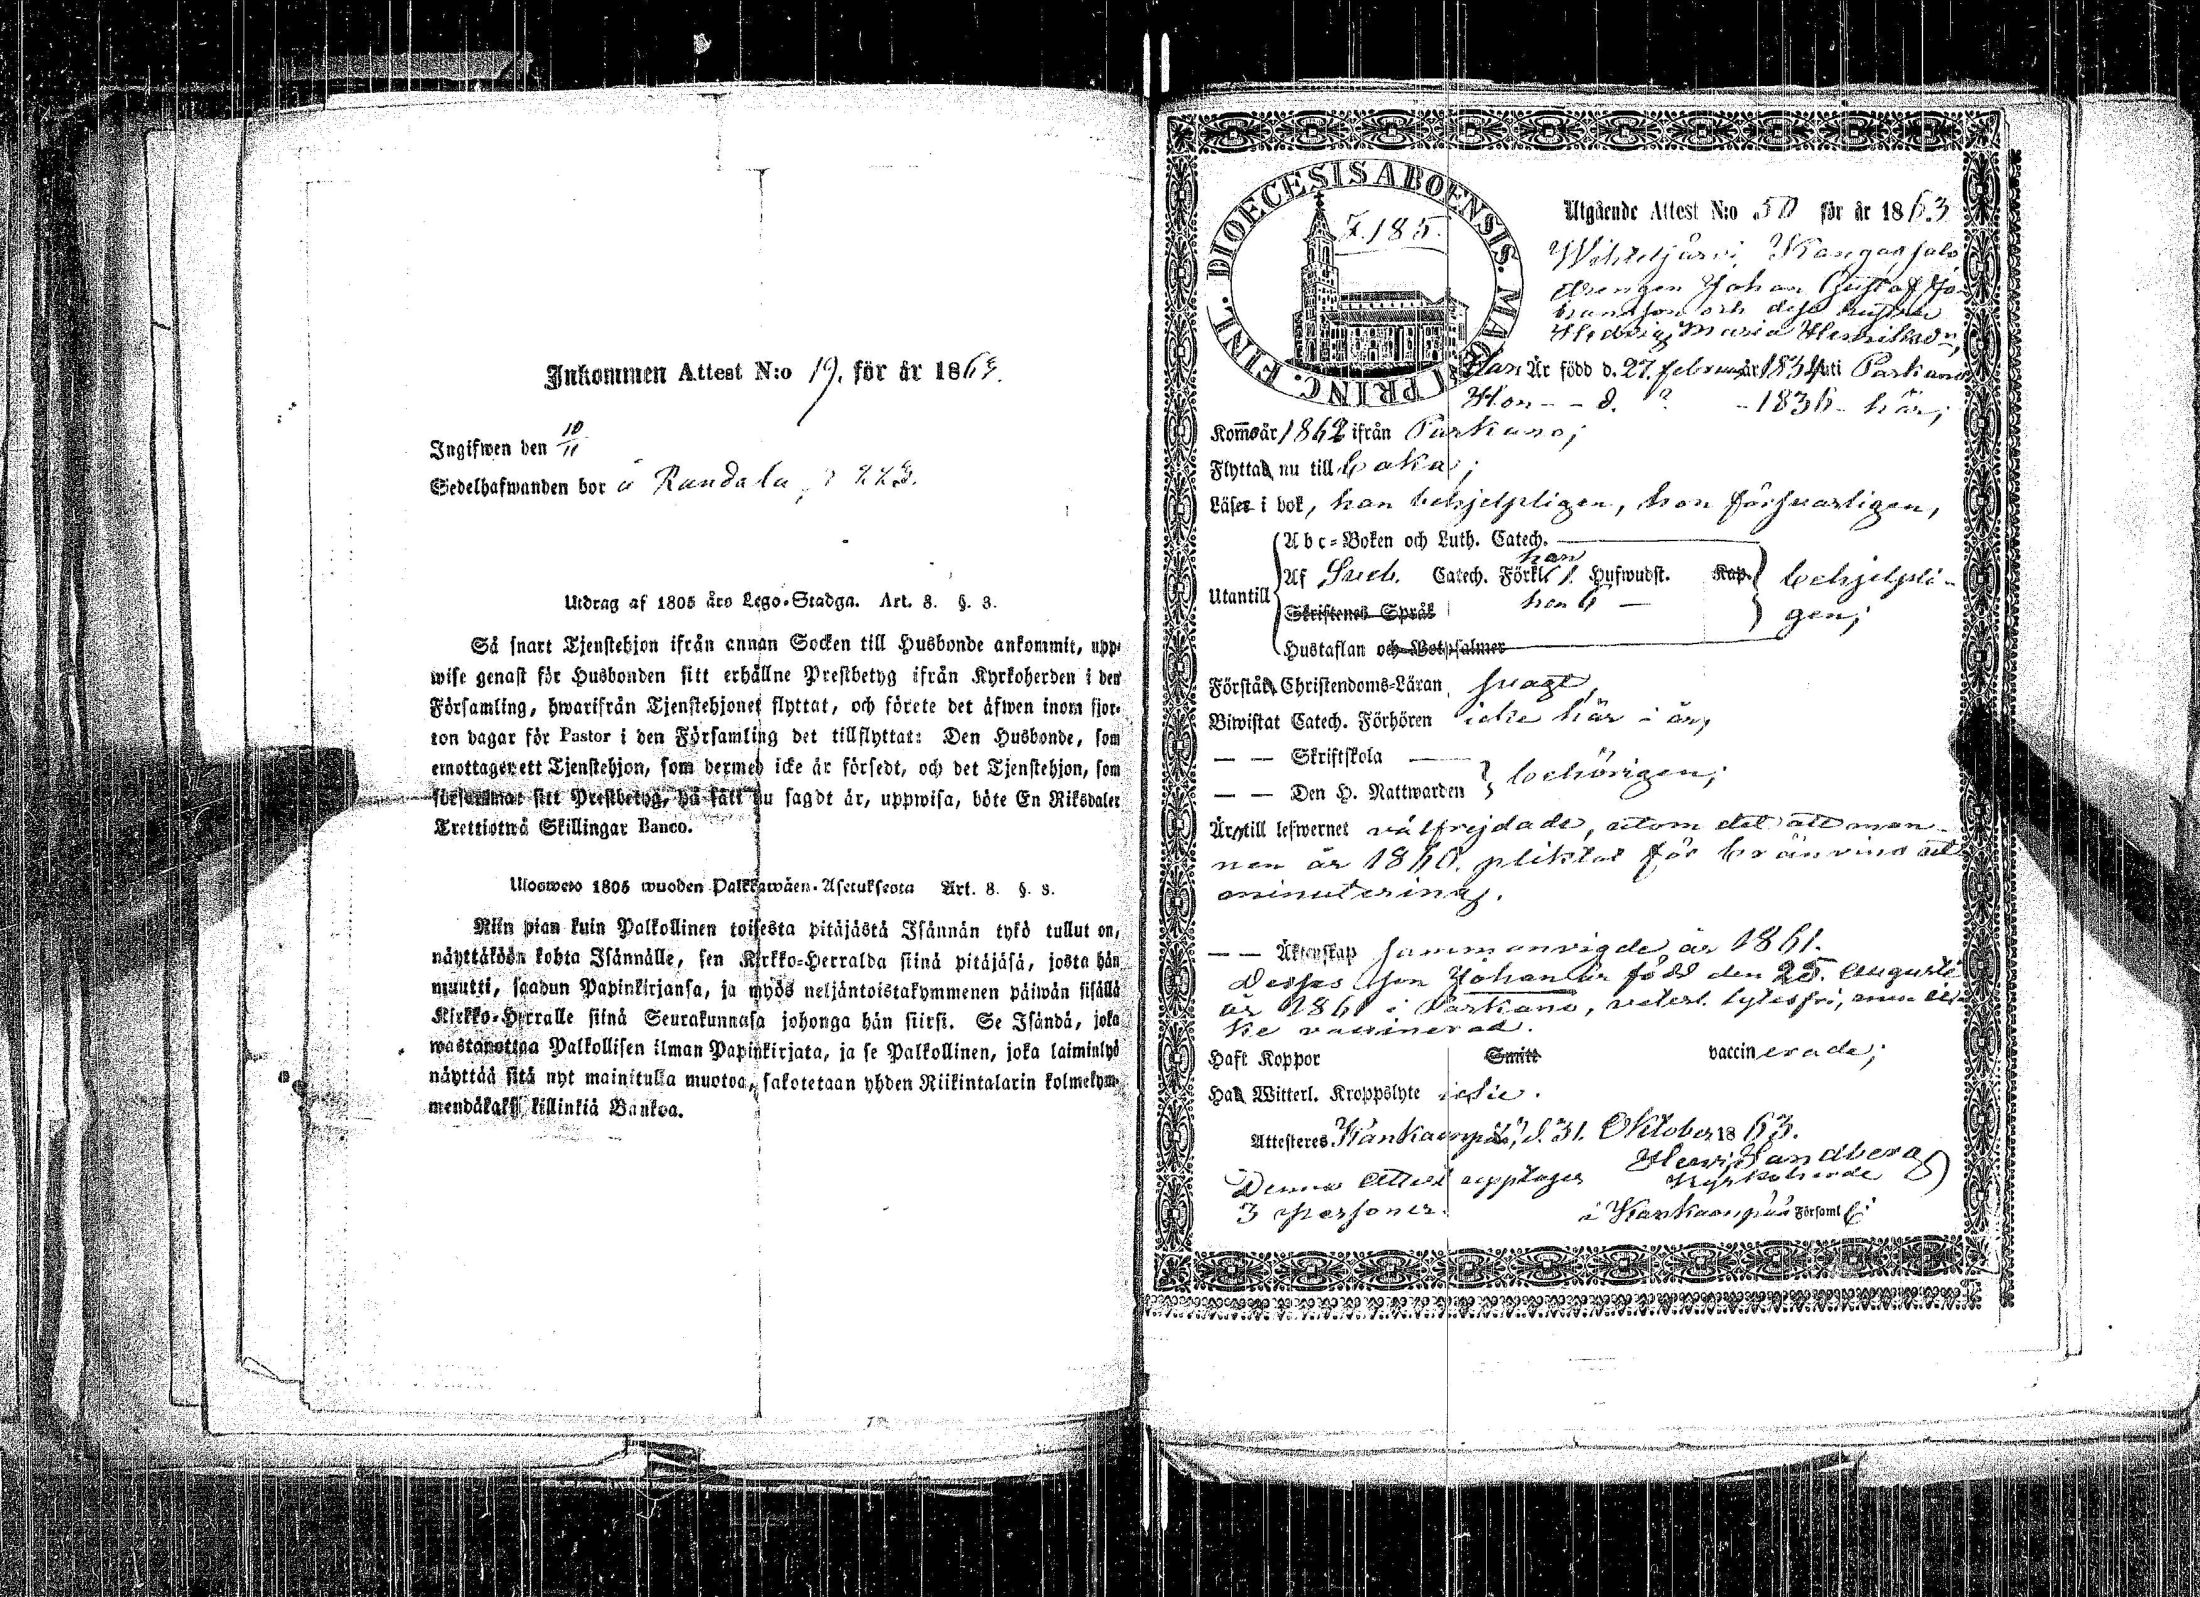 Inkommen Attest N:o 19. för år 1863.
Ingifwen den 10/11
Sedelhafwanden bor å Randala, 223.
Utdrag af 1805 års Lego-Stadga. Art. 8. §. 3.
Så snart Tjenstehjon ifrån annan Socken till Husbonde ankommit, upp-
wise genast för Husbonden sitt erhållne Prestbetyg ifrån Kyrkoherden i den
Församling, hwarifrån Tjenstehjonet flyttat, och förete det äfwen inom fjor-
ton dagar för Pastor i den Församling det tillflyttat: Den Husbonde, som
emottager ett Tjenstehjon, som dermed icke är försedt, och det Tjenstehjon, som
försummat sitt Prestbetyg, på sätt nu sagdt är, uppwisa, böte En Riksdaler
Trettiotwå Skillingar Banco.
Ulosweto 1805 wuoden Palkkawäen-Asetuksesta Art. 8. §. 3.
Niin pian kuin Palkollinen toisesta pitäjästä Isännän tykö tullut on,
näyttäköön kohta Isännälle, sen Kirkko-Herralda siinä pitäjäsä, josta hän
muutti, saadun Papinkirjansa, ja myös neljäntoistakymmenen päiwän sisällä
Kirkko-Herralle siinä Seurakunnasa johonga hän siirsi. Se Isändä, joka
wastanottaa Palkollisen ilman Papinkirjata, ja se Palkollinen, joka laiminlyö
näyttää sitä nyt mainitulla muotoa, sakotetaan yhden Riikintalarin kolmekym-
mendäkaksi killinkiä Bankoa.
DIOECESIS ABOENSIS. MAG. PRINC. FINL.
185.
Utgående Attest N:o 50 för år 1863
Wihtiljärvi Kangasjals
drengen Johan Gustaf
och dess hustru
Hedvig Maria Henriksdr,
Han Är född d. 27. februari år 1834 uti Parkano
Hon - - d. ? - 1836 - här;
Kom̄ år 1862 ifrån Parkano;
Flytta nu till
Läser i bok, han behjelpligen, hon försvarligen,
Utantill
Abc-Boken och Luth. Catech.
han
Af Sveb. Catech. Förkl. 1. Hufwudst. Kap.
hon 6 —
behjelpli-
gen;
Skriftenes Språk
Hustaflan och Botpsalmer
Förstå Christendoms-Läran svagt,
Biwistat Catech. Förhören icke här i år,
— — Skriftskola
— — Den H. Nattwarden
behörigen;
Är till lefwernet välfrejdade, utom det att man-
nen år 1860. pliktat för bränvins ut-
minutering.
— — Äktenskap sammanvigde år 1861.
Desses son Johan är född den 25. Augusti
år 1861 i Parkano, veterl. lytesfri, men ic-
ke vaccinerad.
Haft Koppor Smitt vaccinerade;
Ha Witterl. Kroppslyte icke.
Attesteres Kankaanpää, d. 31. Oktober 1863.
Denna Attest upptager
3 personer.
Sandberg
Kyrkoherde
i Kankaanpää Församl.